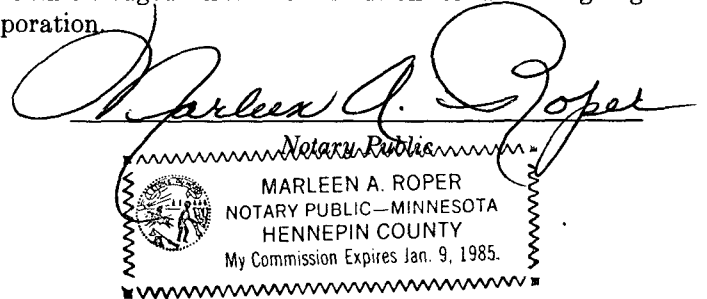 poration.
Marleen A. Roper
Notary Public
MARLEEN A. ROPER
NOTARY PUBLIC—MINNESOTA
HENNEPIN COUNTY
My Commission Expires Jan. 9, 1985.